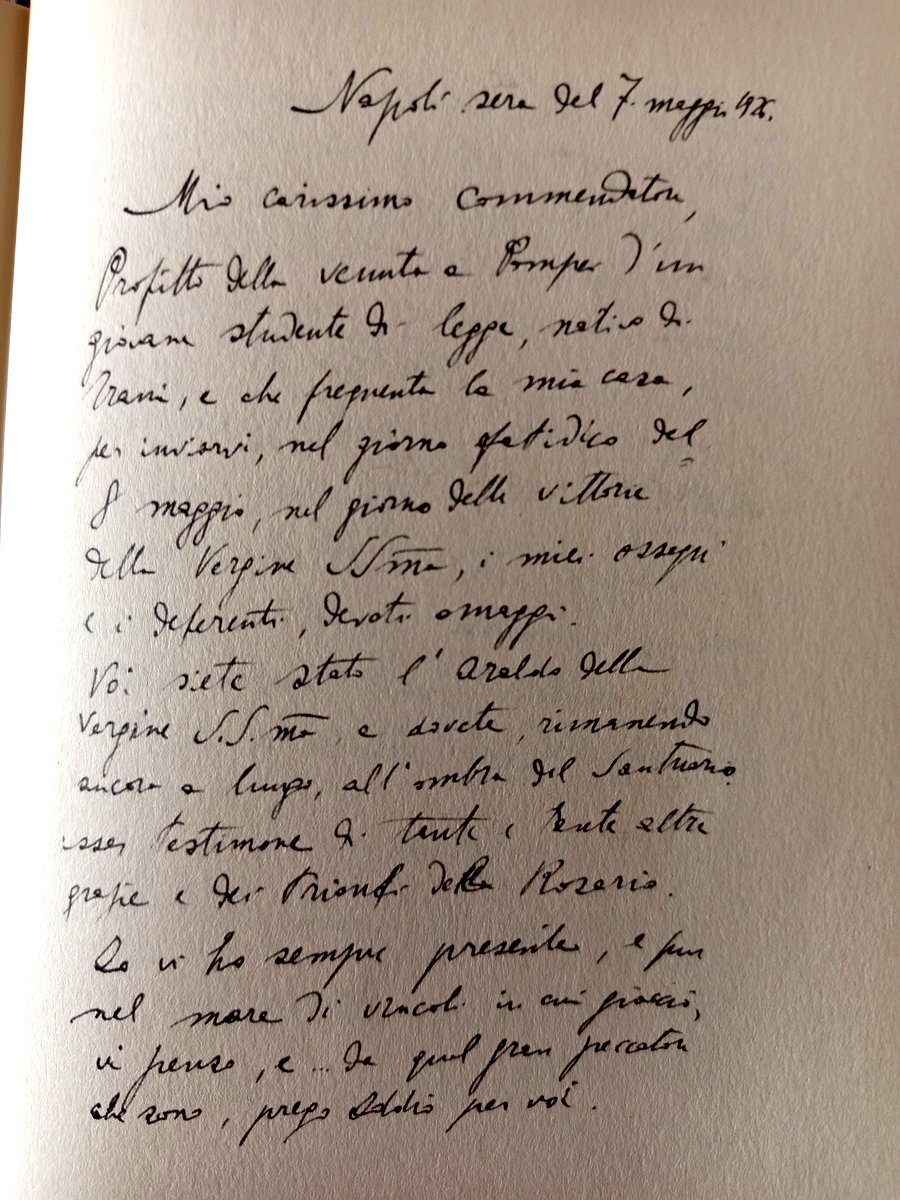 Napoli sera del 7 maggio 192.
Mio carissimo Commendatore,
Profitto della venuta a Pompei d'un
giovane studente di legge, nativo di
Trani, e che frequenta la mia casa,
per inviarvi, nel giorno fatidico del
8 maggio, nel giorno delle vittorie
della Vergine SSma, i miei ossequi
e i deferenti, devoti omaggi.
Voi siete stato l'araldo della
Vergine S.S.ma, e dovete, rimanendo
ancora a lungo, all'ombra del Santuario
esser testimone di tante e tante altre
grazie e dei trionfi della Rosario.
Io vi ho sempre presente, e pur
nel mare di vincoli in cui giaccio,
vi penso, e ... da quel gran peccatore
che sono, prego Iddio per voi.